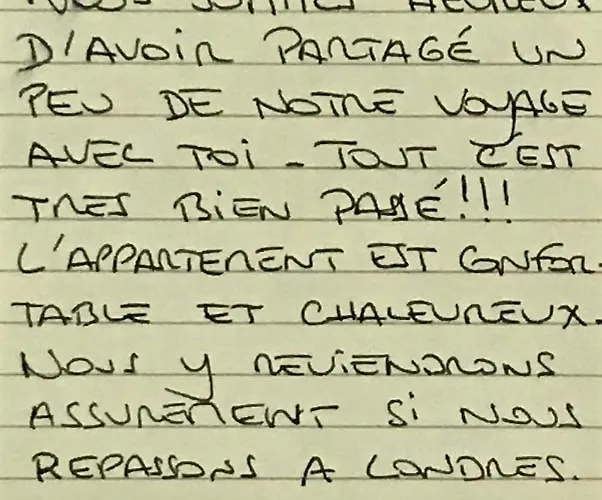 NOUS SOMMES HEUREUX
D'AVOIR PARTAGÉ UN
PEU DE NOTRE VOYAGE
AVEC TOI - TOUT C'EST
TRES BIEN PASSÉ!!!
L'APPARTEMENT EST CONFOR-
TABLE ET CHALEUREUX.
NOUS Y REVIENDRONS
ASSUREMENT SI NOUS
REPASSONS A LONDRES.